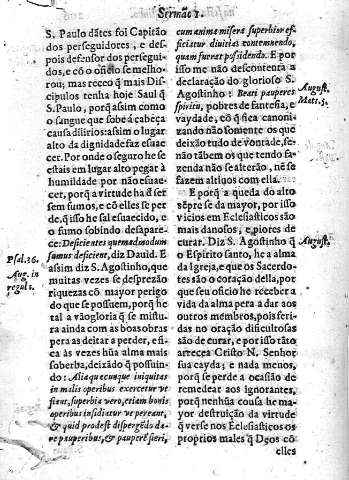 Sermão 1.
S. Paulo dãtes foi Capitão
dos perseguidores, e des-
pois defensor dos persegui-
dos, e cõ o oficio se melho-
rou; mas receo q̃ mais Dis-
cipulos tenha hoje Saul q̃
S. Paulo, porq̃ assim como
o sangue que sobe á cabeça
causa dilirios: assim o lugar
alto da dignidade faz esuae-
cer. Por onde o seguro he se
estais em lugar alto pegár á
humildade por não esuae-
cer, porq̃ a virtude ha d' ser
sem fumos, e cõ elles se per-
de, q̃ isso he sal esuaecido, e
o fumo sobindo desapare-
ce: Deficientes quemadmodum
fumus deficient, diz Dauid. E
assim diz S. Agostinho, que
muitas vezes se desprezão
riquezas cõ mayor perigo
do que se possuem, porq̃ he
tal a vãogloria q̃ se mistu-
ra ainda com as boas obras
pera as deitar a perder, e fi-
ca ás vezes hũa alma mais
soberba, deixãdo q̃ possuin-
do: Alia quæcunque iniquitas
in malis operibus exercetur vt
fiant, superbia vero, etiam bonis
operibus insidiatur vt pereant,
& quid prodest dispergẽdo da-
re pauperibus, & pauperẽ fieri,
Psal. 36.
Aug. in
regul.
cum anima misera superbior ef-
ficiatur divitias contemnendo,
quam fuerat possidendo. E por
isso me não descontenta a
declaração do glorioso S.
Agostinho: Beati pauperes
spiritu, pobres de fantesia, e
vaydade, cõ q̃ fica canoni-
zando não somente os que
deixão tudo de vontade, se-
não tãbem os que tendo fa-
zenda não se alterão, nẽ se
fazem altiuos com ella.
E porq̃ a queda do alto
sẽpre se da mayor, por isso
vicios em Eclesiasticos são
mais danosos, e piores de
curar. Diz S. Agostinho q̃
o Espirito santo, he a alma
da Igreja, e que os Sacerdo-
tes são o coração della, por
que seu oficio he receber a
vida da alma pera a dar aos
outros membros, pois feri-
das no oração dificultosas
são de curar, e por isso tãto
arrecea Cristo N. Senhor
sua cayda; e nada menos,
porq̃ se perde a ocasião de
remedear aos ignorantes,
porq̃ nenhũa cousa he ma-
yor destruição da virtude
q̃ verse nos Eclesiasticos os
proprios males q̃ Dẽos cõ
elles
August.
Matt. 5.
August.